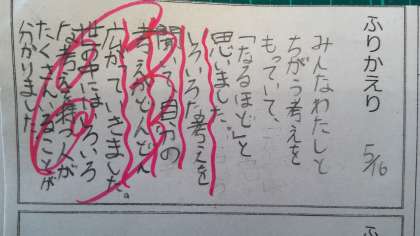 ふりかえり 5/16
みんなわたしと
ちがう考えを
もっていて、
「なるほど」と
思いました。
いろいろな考えを
聞いて自分の
考えがどんどん
広がっていきました。
世の中にはいろいろ
な考えを持つ人が
たくさんいることが
分かりました。
ふ